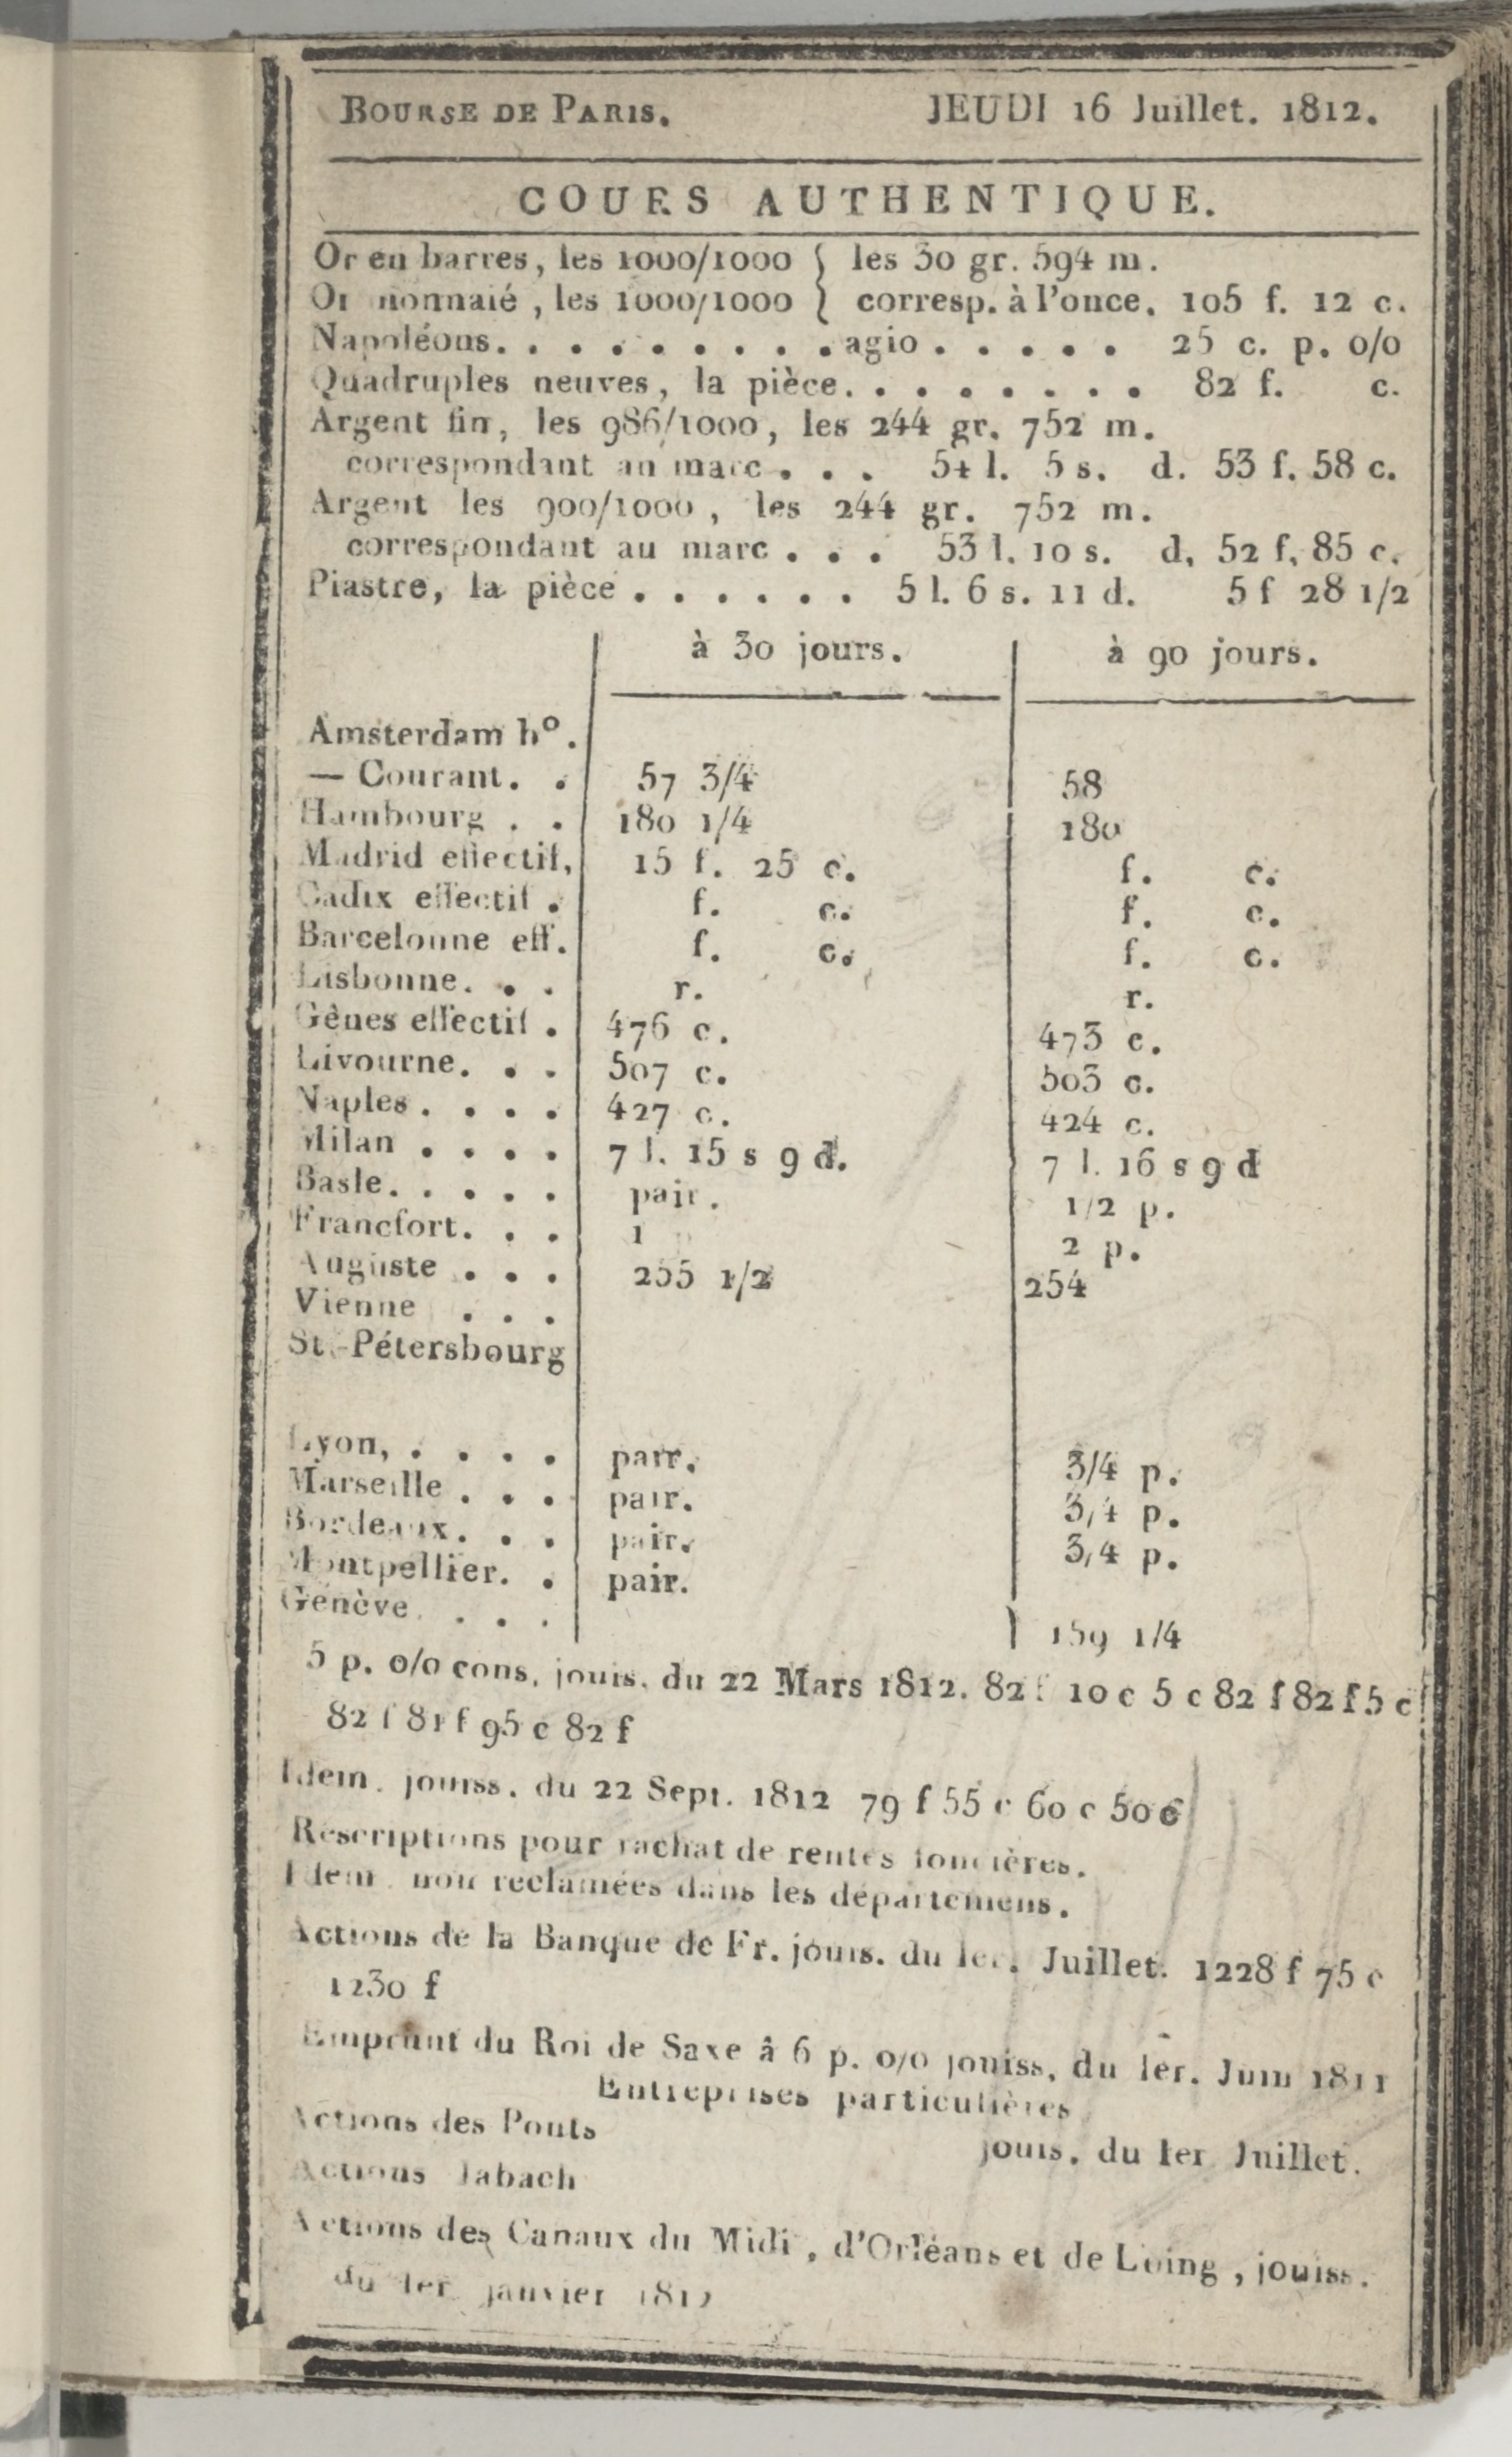 BOURSE DE PARIS. JEUDI 16 Juillet. 1812.
COURS AUTHENTIQUE.
Or en barres, les 1000/1000 { les 30 gr. 594 m.
Or monnaié, les 1000/1000 } corresp. à l'once. 105 f. 12 c.
Napoléons. . . . . . . . . agio . . . . . 25 c. p. 0/0
Quadruples neuves, la pièce. . . . . . . . 82 f. c.
Argent fin, les 986/1000, les 244 gr. 752 m.
correspondant au marc . . . 54 l. 5 s. d. 53 f. 58 c.
Argent les 900/1000, les 244 gr. 752 m.
correspondant au marc . . . 53 l. 10 s. d, 52 f, 85 c.
Piastre, la pièce . . . . . . 5 l. 6 s. 11 d. 5 f 28 1/2
à 30 jours. à 90 jours.
Amsterdam hº.
— Courant. . 57 3/4 58
Hambourg . . 180 1/4 180
Madrid effectif, 15 f. 25 c. f. c.
Cadix effectif . f. c. f. c.
Barcelonne eff. f. c. f. c.
Lisbonne. . . r. r.
Gênes effectif . 476 c. 473 c.
Livourne. . . 507 c. 503 c.
Naples . . . . 427 c. 424 c.
Milan . . . . 7 l. 15 s 9 d. 7 l. 16 s 9 d
Basle. . . . . pair. 1/2 p.
Francfort. . . 1 p 2 p.
Auguste . . . 255 1/2 254
Vienne . . .
St.-Pétersbourg
Lyon, . . . . pair. 3/4 p.
Marseille . . . pair. 3/4 p.
Bordeaux. . . pair. 3/4 p.
Montpellier. . pair.
Genève. . . . 159 1/4
5 p. 0/0 cons, jouis. du 22 Mars 1812. 82 f 10 c 5 c 82 f 82 f 5 c
82 f 81 f 95 c 82 f
Idem. jouiss. du 22 Sept. 1812 79 f 55 c 60 c 50 c
Rescriptions pour rachat de rentes foncières.
Idem non reclamées dans les départemens.
Actions de la Banque de Fr. jouis. du 1er. Juillet. 1228 f 75 c
1230 f
Emprunt du Roi de Saxe à 6 p. 0/0 jouiss, du 1er. Juin 1811
Entreprises particulières
Actions des Ponts jouis. du 1er Juillet.
Actions Jabach
Actions des Canaux du Midi, d'Orléans et de Loing, jouiss.
du 1er janvier 1812